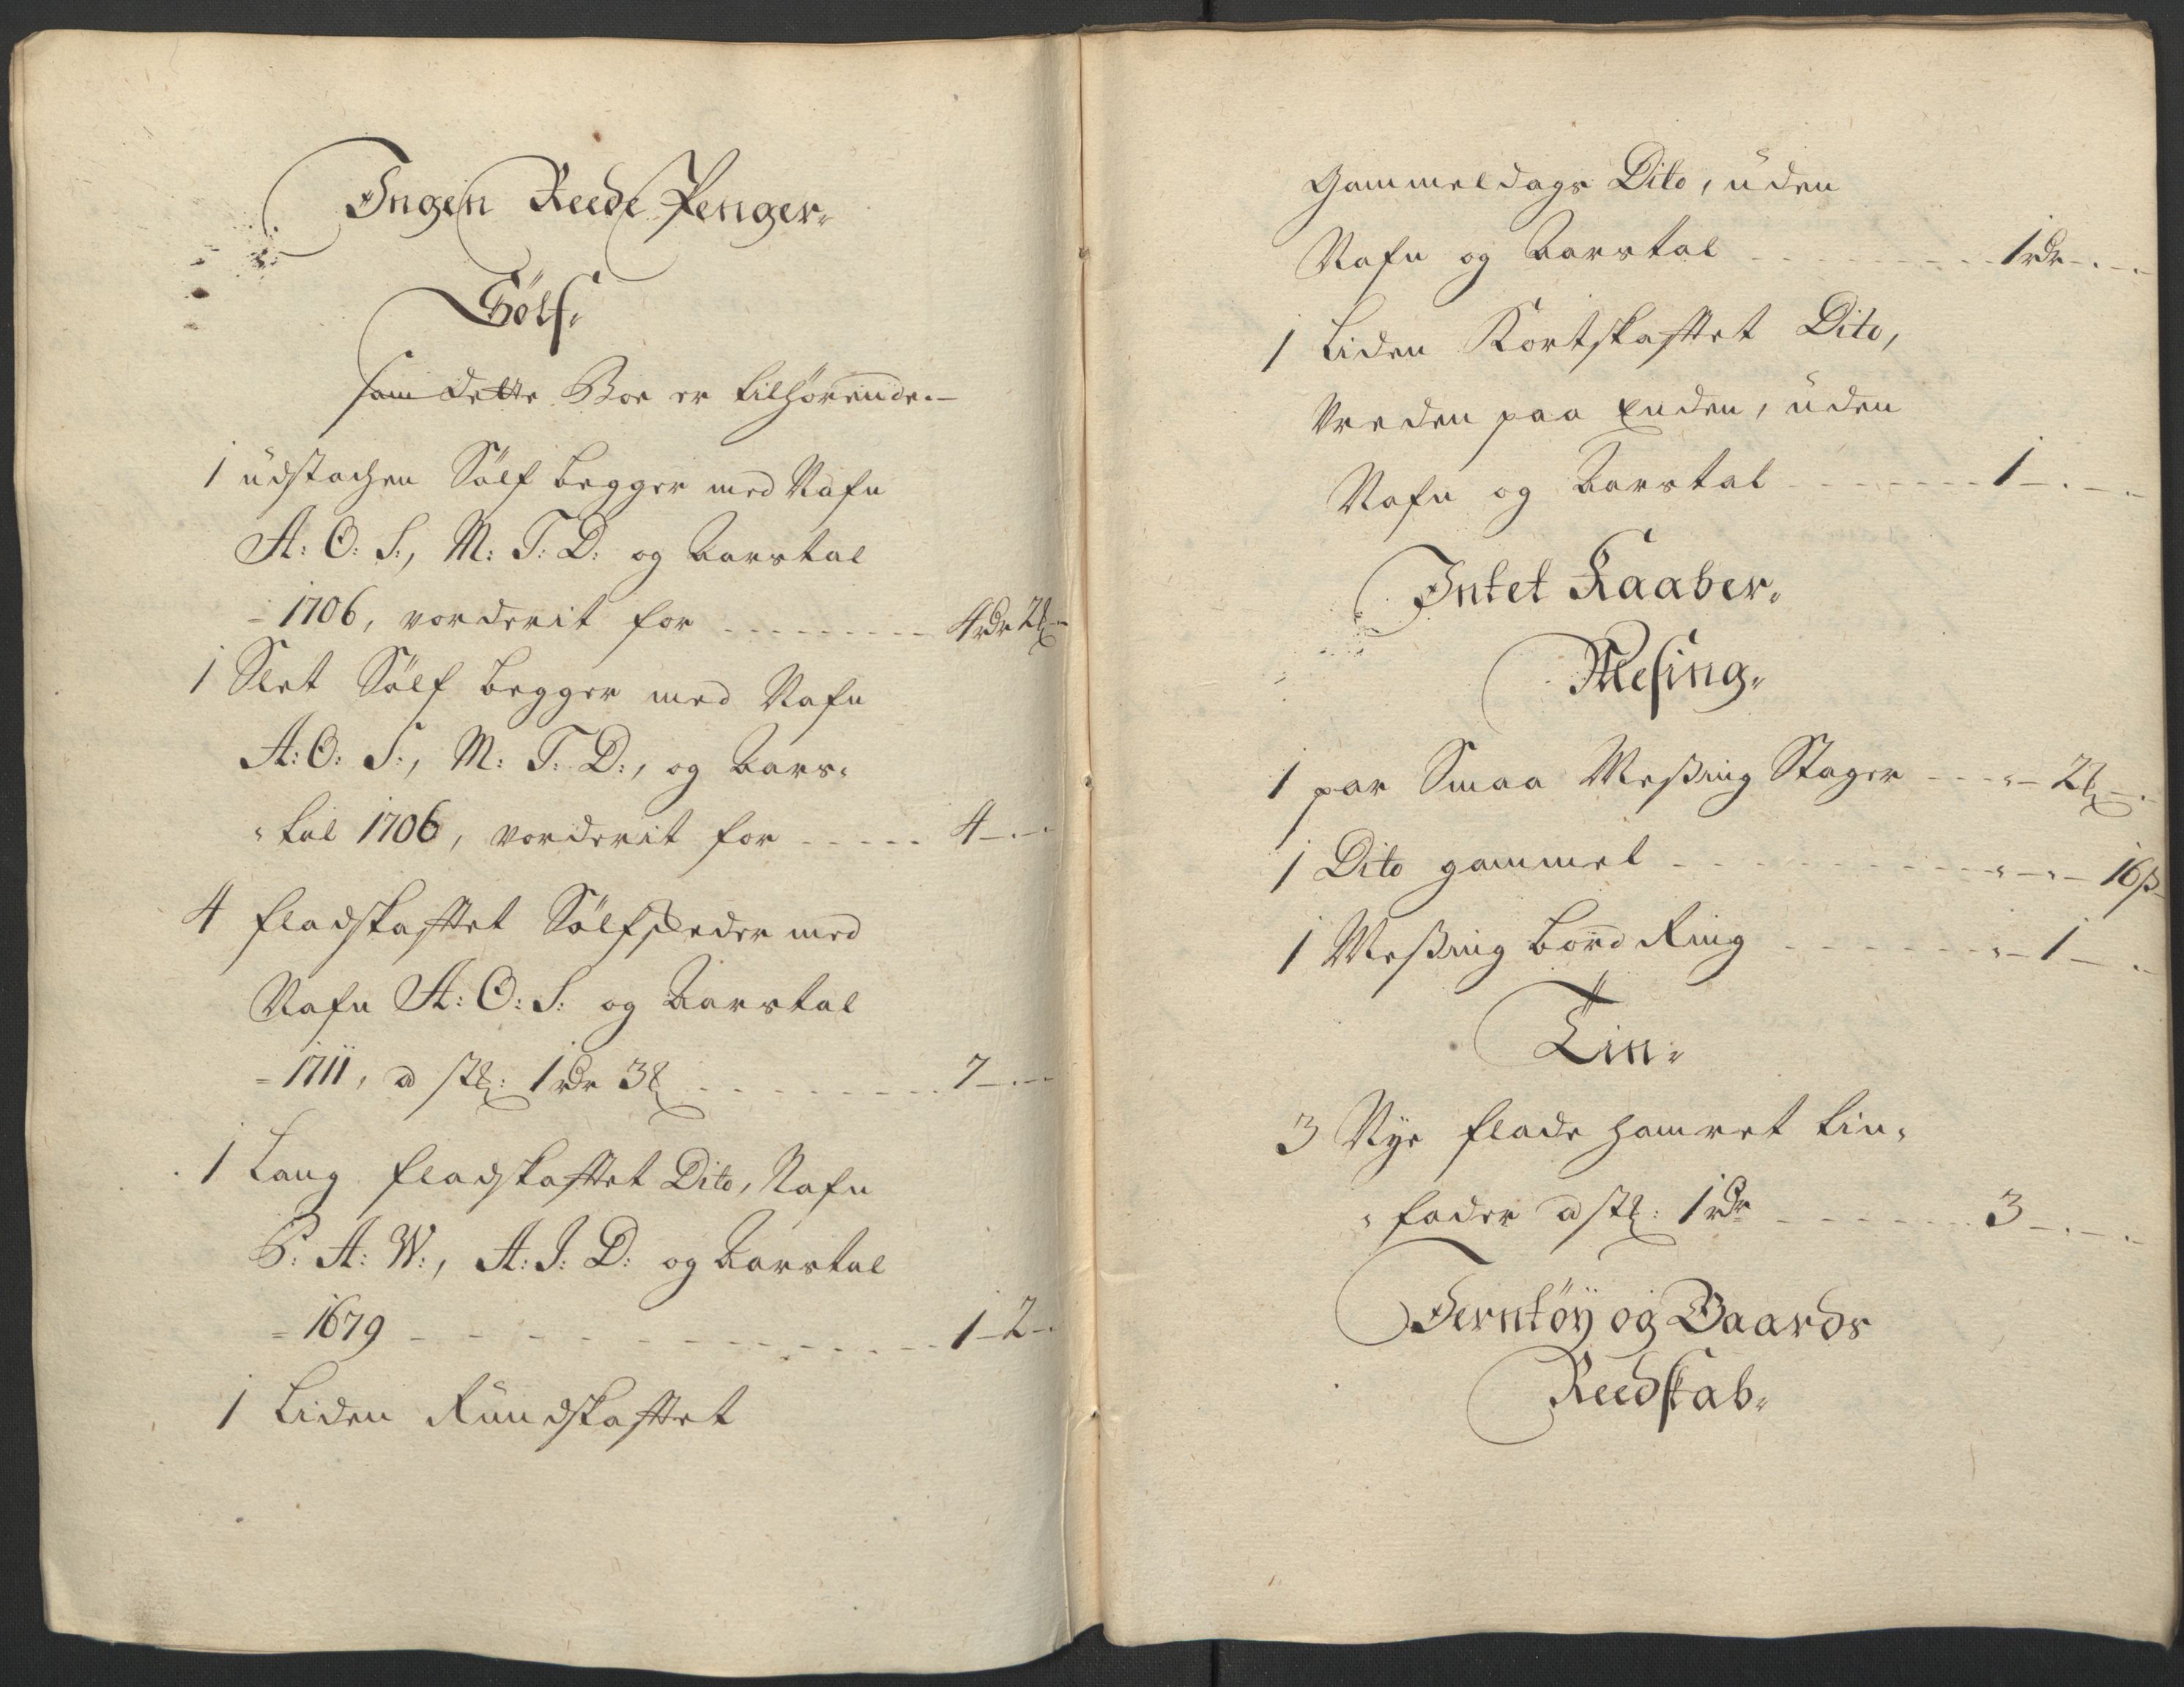 Ingen Reede Penger.
Sölf.
som dette Boe er tilhörende.
1 udstachen Sölf begger med Nafn
A: O: S:, M: T: D: og Aarstal
1706, vorderit for 4 rdr 2 ß
1 Slet Sölf begger med Nafn
A: O: S:, M: T: D:, og Aars-
tal 1706, vorderit for 4
4 fladskafftet Sölfskeder med
Nafn A: O: S: og Aarstal
1711, a stk: 1 rdr 3 7
1 Lang fladskafftet Dito, Nafn
P: A: W:, A: I: D: og Aarstal
1679 1 - 2
1 Liden Rundskafftet
Gammeldags Dito, uden
Nafn og Aarstal 1 rdr
1 Liden Kortskafftet Dito,
Vreden paa Enden, uden
Nafn og Aarstal 1
Intet Kaaber.
Mesing.
1 par Smaa Messing Stager 2
1 Dito gammel 16 ß
1 Messing bord Ring 1
Tin.
3 Nye flade hamret tin-
fader a stk: 1 rdr 3
Jerntöy og Gaards
Reedskab.